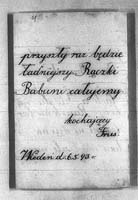 przyszły raz będzie
ładniejszy Rączki
Babuni całujemy
kochający
Wiedeń d. 6.5.93.